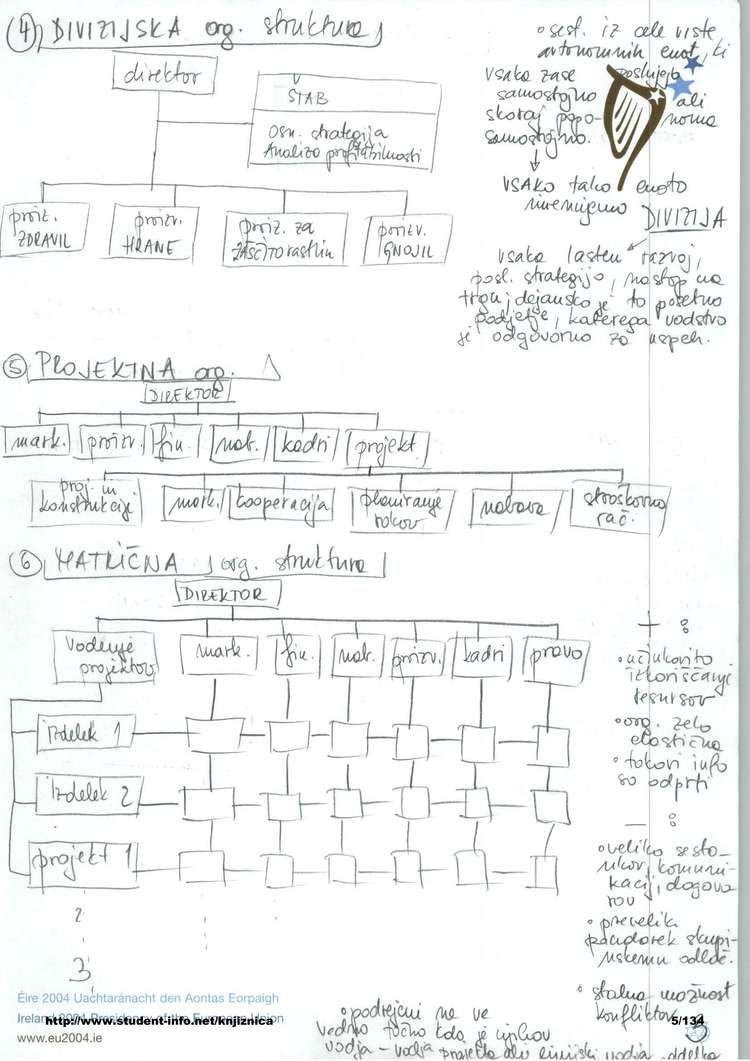 ④ DIVIZIJSKA org. struktura
direktor
ŠTAB
Osn. strategija
Analiza profitabilnosti
proiz. ZDRAVIL
proizv. HRANE
proiz. za ZAŠČITO rastlin
proizv. GNOJIL
• sest. iz cele vrste
avtonomnih enot, ki
vsaka zase posluje
samostojno ali
skoraj popo- noma
samostojno.
↓
VSAKO tako enoto
imenujemo DIVIZIJA
vsaka lasten razvoj,
posl. strategijo, nastop na
trgu, dejansko je to posebno
podjetje, katerega vodstvo
je odgovorno za uspeh.
⑤ PROJEKTNA org.
DIREKTOR
mark. proizv. fin. nab. kadri projekt
proj. in konstrukcije
mark.
kooperacija
planiranje rokov
nabava
stroškovno rač.
⑥ MATRIČNA org. struktura
DIREKTOR
vodenje projektov
mark. fin. nab. proizv. kadri pravo
izdelek 1
izdelek 2
projekt 1
2
3
+ :
• učinkovito
izkoriščanje
resursov
• org. zelo
elastična
• tokovi info
so odprti
– :
• veliko sesta-
nkov, komuni-
kacij, dogovo
rov
• prevelik
poudarek skupi-
nskemu odloč.
• stalna možnost
konfliktov
• podrejeni ne ve
vedno točno kdo je njihov
vodja – vodja projekta ali linijski vodja oddelka
Éire 2004 Uachtaránacht den Aontas Eorpaigh
Ireland 2004 Presidency of the European Union
http://www.student-info.net/knjiznica
5/134
www.eu2004.ie